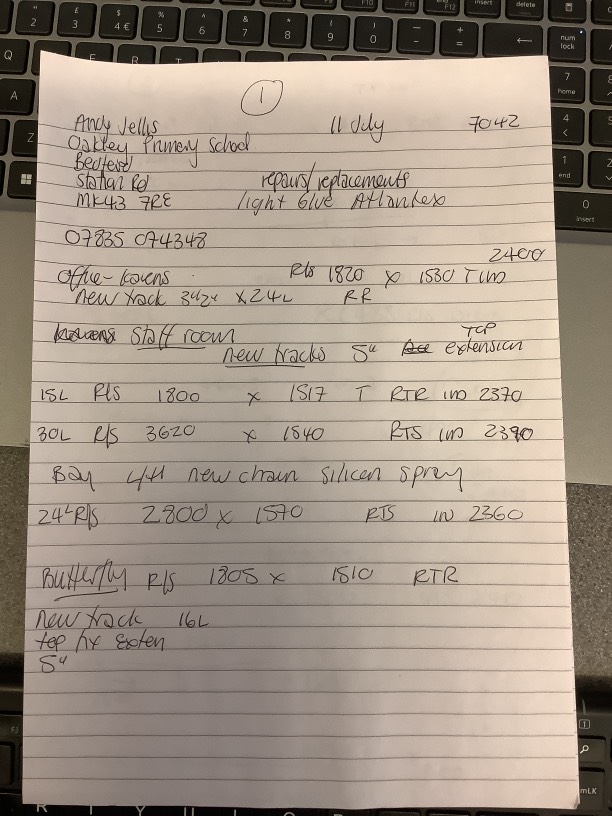 1
Andy Jellis 11 July 7042
Oakley Primary School
Bedford
Station Rd repairs/replacements
MK43 7RE light blue Atlantex
07835 074348
2400
Office - R/S 1820 x 1530 T
new track x 24L RR
staff room TOP
new tracks 5" extension
15L R/S 1800 x 1517 T RTR 2370
30L R/S 3620 x 1540 RTS
Bay new chain silicon spray
24L R/S 2800 x 1570 RTS IN 2360
Butterfly R/S 1805 x 1510 RTR
new track 16L
top fix exten
5"